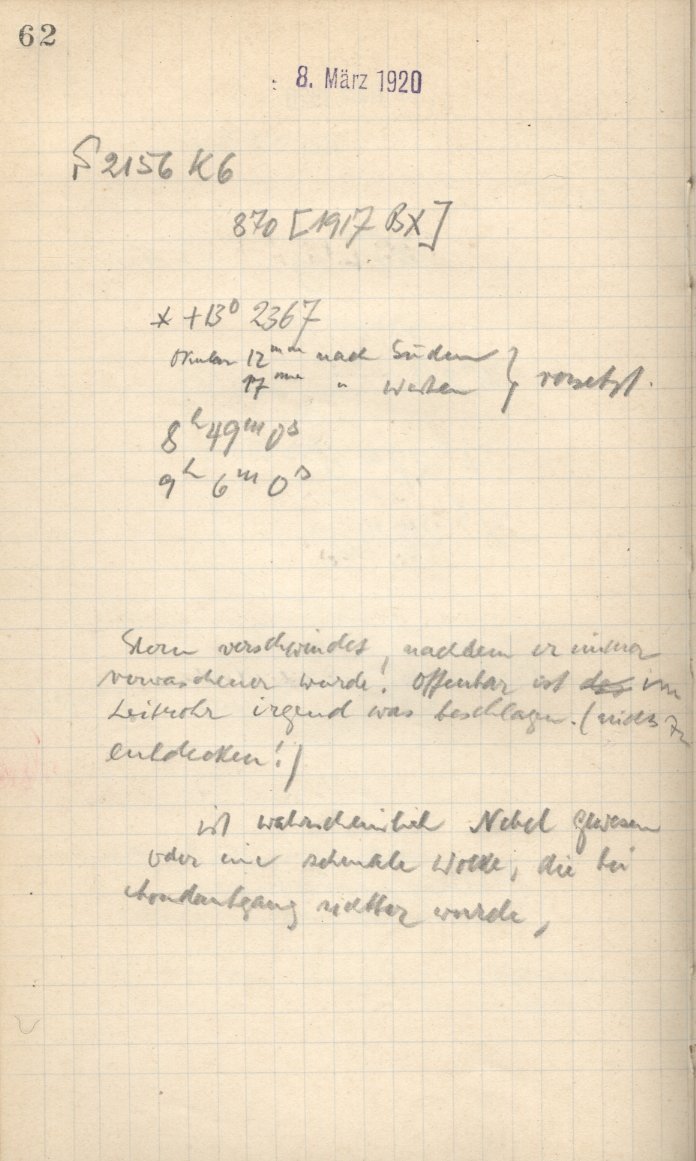 62
8. März 1920
2156 K6
870 [1917 BX]
* +13° 2367
Okular 12 mm nach Süden
17 mm " Westen } versetzt.
8h 49m 0s
9h 6m 0s
Stern verschwindet, nachdem er immer
verwaschener wurde! Offenbar ist das im
Leitrohr irgend was beschlagen. (nichts zu
entdecken!)
ist wahrscheinlich Nebel gewesen
oder eine schmale Wolke, die bei
Mondaufgang sichtbar wurde,